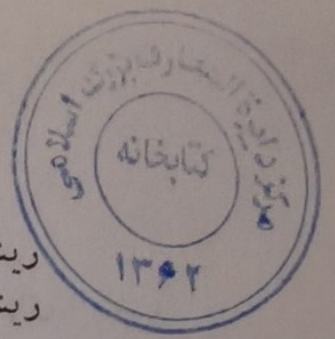 مرکز دایرة المعارف بزرگ اسلامی
کتابخانه
۱۳۶۲